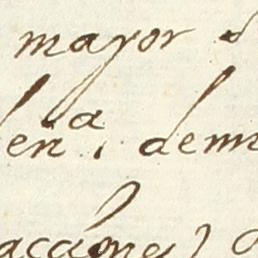 mayor
en.ª dem
acciones